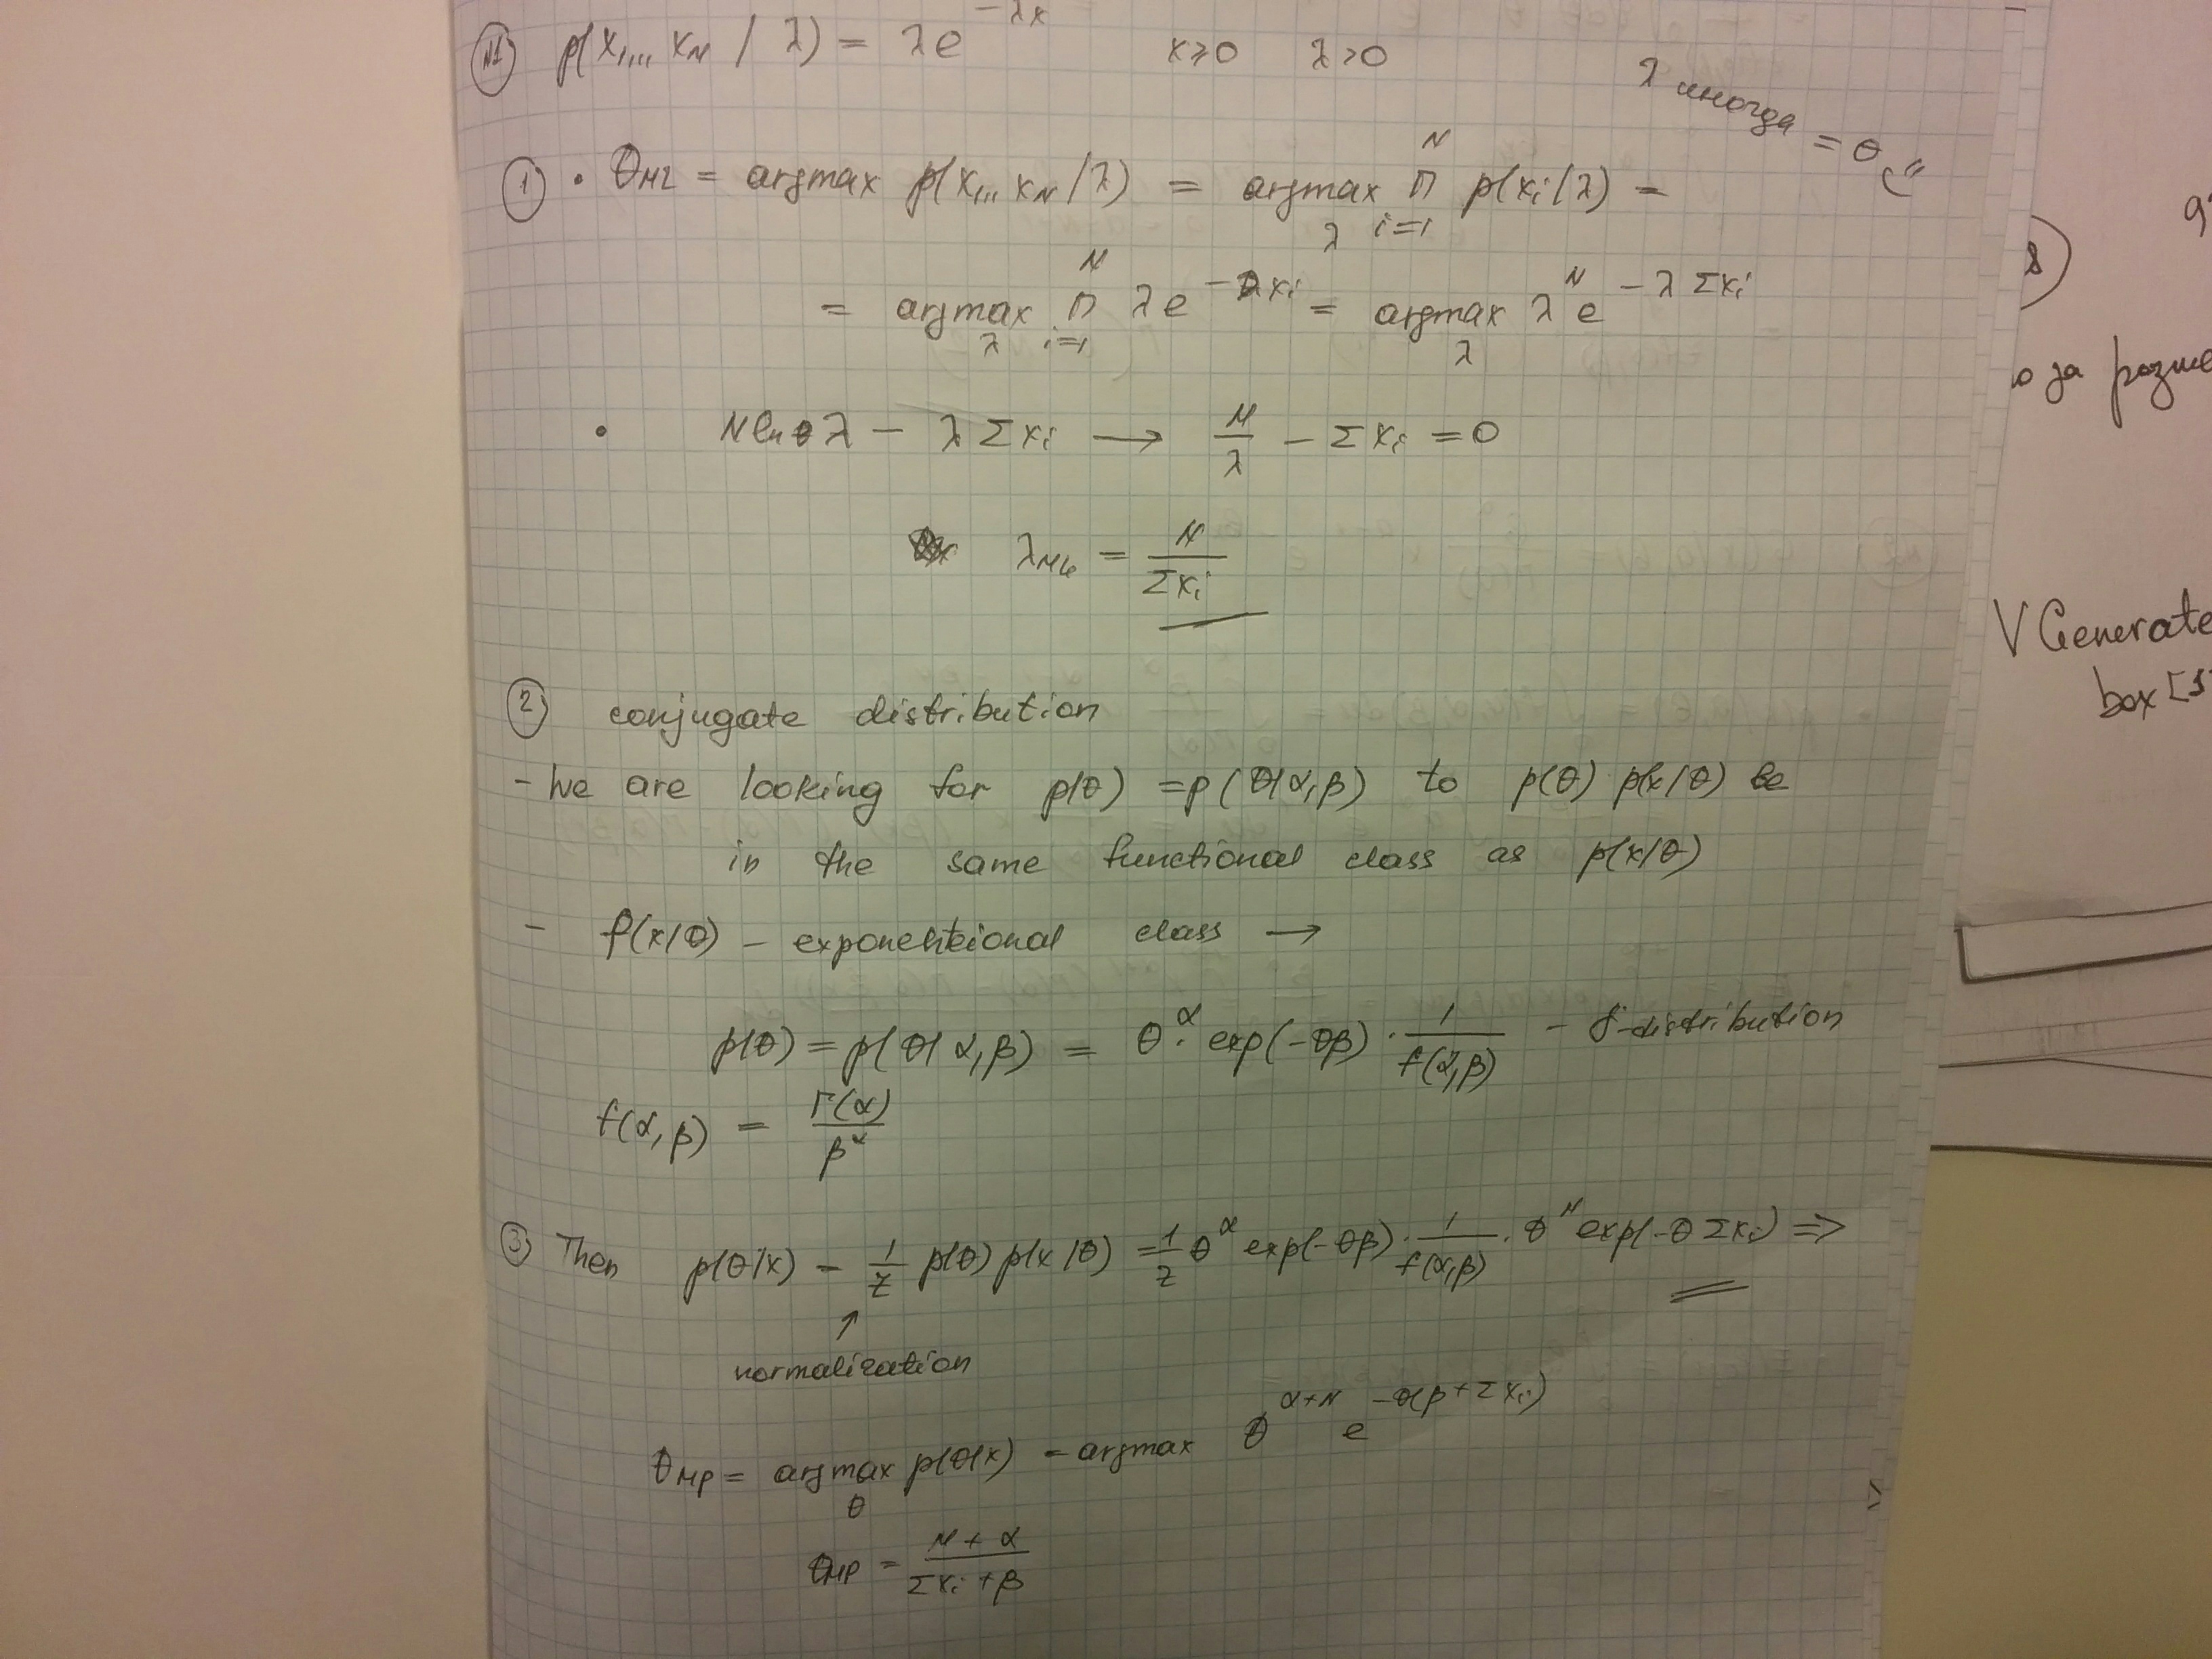 №1 p(x₁,... x_N / λ) = λe^{-λx}   x≥0   λ>0
λ иногда = θ
① • θ_ML = argmax p(x₁,... x_N / λ) = argmax_λ ∏_{i=1}^{N} p(x_i / λ) =
= argmax_λ ∏_{i=1}^{N} λe^{-λx_i} = argmax_λ λ^N e^{-λΣx_i}
• N ln λ - λΣx_i → N/λ - Σx_i = 0
λ_ML = N/Σx_i
② conjugate distribution
- we are looking for p(θ) = p(θ|α,β) to p(θ) p(x/θ) be
in the same functional class as p(x/θ)
- p(x/θ) - exponentional class →
p(θ) = p(θ|α,β) = θ^α · exp(-θβ) · 1/f(α,β) - γ-distribution
f(α,β) = Γ(α)/β^α
③ Then p(θ|x) - 1/Z p(θ) p(x/θ) = 1/Z θ^α exp(-θβ) · 1/f(α,β) · θ^N exp(-θΣx_i) ⇒
↑
normalization
θ_MP = argmax_θ p(θ|x) - argmax θ^{α+N} e^{-θ(β+Σx_i)}
θ_MP = (N + α)/(Σx_i + β)
за
V Generate
box [